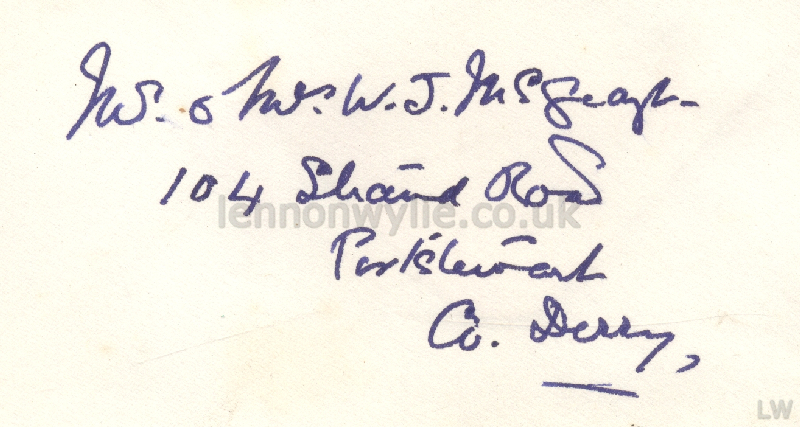 Mr. & Mrs. W. J. McGeagh
104 Strand Road
lennonwylie.co.uk
Portstewart
Co. Derry,
LW